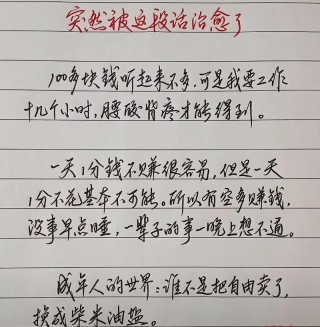 突然被这段话治愈了
100多块钱听起来不多,可是我要工作
十几个小时,腰酸背疼才能得到。
一天1分钱不赚很容易,但是一天
1分不花基本不可能。所以有空多赚钱,
没事早点睡,一辈子的事一晚上想不通。
成年人的世界:谁不是把自由卖了,
换成柴米油盐。